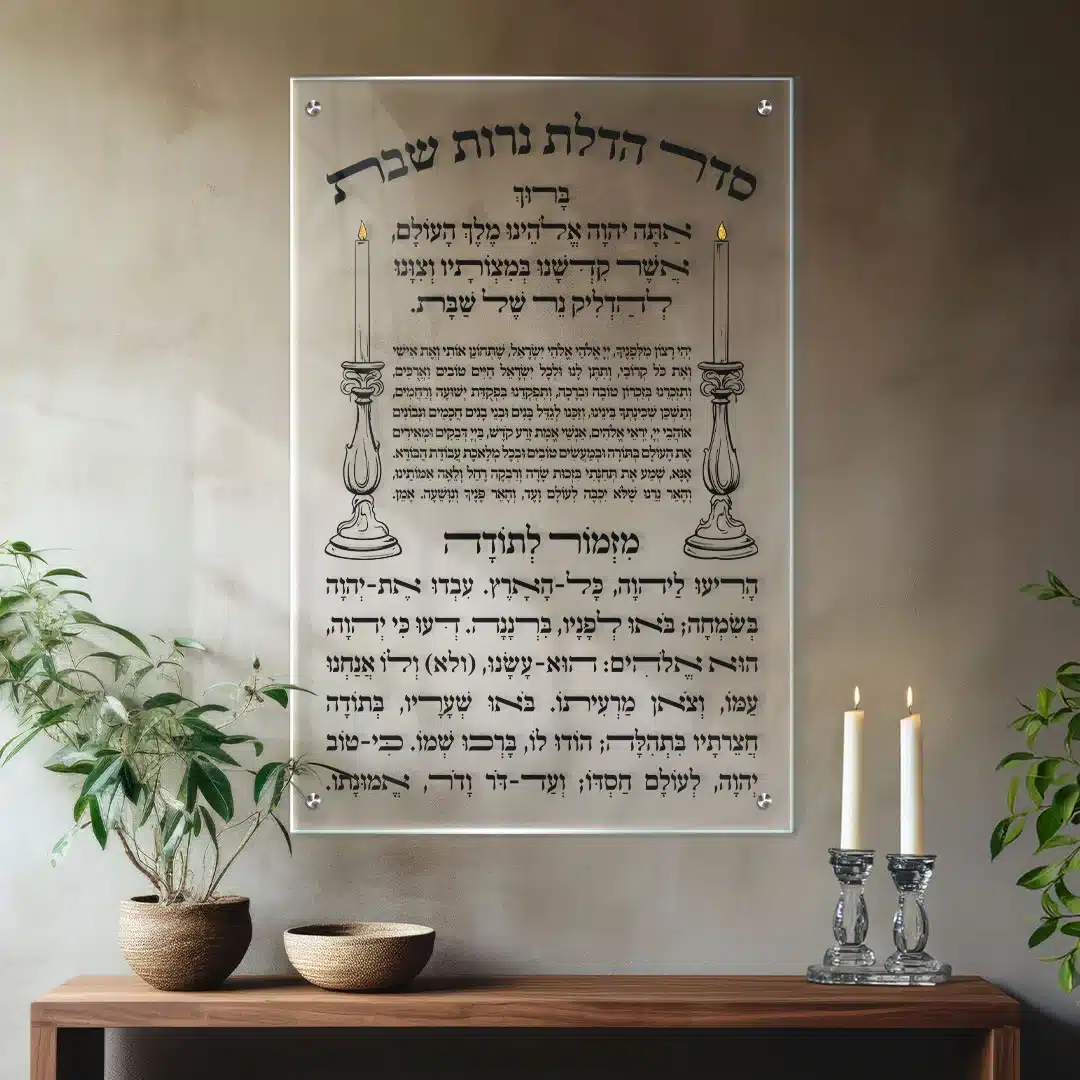 סדר הדלת נרות שבת
בָּרוּךְ
אַתָּה יְהוָה אֱלֹהֵינוּ מֶלֶךְ הָעוֹלָם,
אֲשֶׁר קִדְּשָׁנוּ בְּמִצְוֹתָיו וְצִוָּנוּ
לְהַדְלִיק נֵר שֶׁל שַׁבָּת.
יְהִי רָצוֹן מִלְּפָנֶיךָ, יְיָ אֱלֹהַי אֱלֹהֵי יִשְׂרָאֵל, שֶׁתְּחוֹנֵן אוֹתִי וְאֶת אִישִׁי
וְאֶת כֹּל קְרוֹבַי, וְתִתֶּן לָנוּ וּלְכָל יִשְׂרָאֵל חַיִּים טוֹבִים וַאֲרֻכִּים,
וְתִזְכְּרֵנוּ בְּזִכְרוֹן טוֹבָה וּבְרָכָה, וְתִפְקְדֵנוּ בִּפְקֻדַּת יְשׁוּעָה וְרַחֲמִים,
וְתַשְׁכֵּן שְׁכִינָתְךָ בֵּינֵינוּ, וְזַכֵּנוּ לְגַדֵּל בָּנִים וּבְנֵי בָנִים חֲכָמִים וּנְבוֹנִים
אוֹהֲבֵי יְיָ, יִרְאֵי אֱלֹהִים, אַנְשֵׁי אֱמֶת זֶרַע קֹדֶשׁ, בַּיְיָ דְּבֵקִים וּמְאִירִים
אֶת הָעוֹלָם בְּתוֹרָה וּבְמַעֲשִׂים טוֹבִים וּבְכָל מְלֶאכֶת עֲבוֹדַת הַבּוֹרֵא.
אָנָּא, שְׁמַע אֶת תְּחִנָּתִי בִּזְכוּת שָׂרָה וְרִבְקָה רָחֵל וְלֵאָה אִמּוֹתֵינוּ,
וְהָאֵר נֵרֵנוּ שֶׁלֹּא יִכְבֶּה לְעוֹלָם וָעֶד, וְהָאֵר פָּנֶיךָ וְנִוָּשֵׁעָה. אָמֵן.
מִזְמוֹר לְתוֹדָה
הָרִיעוּ לַיהוָה, כָּל-הָאָרֶץ. עִבְדוּ אֶת-יְהוָה
בְּשִׂמְחָה; בֹּאוּ לְפָנָיו, בִּרְנָנָה. דְּעוּ כִּי יְהוָה,
הוּא אֱלֹהִים: הוּא-עָשָׂנוּ, (ולא) וְלוֹ אֲנַחְנוּ
עַמּוֹ, וְצֹאן מַרְעִיתוֹ. בֹּאוּ שְׁעָרָיו, בְּתוֹדָה
חֲצֵרֹתָיו בִּתְהִלָּה; הוֹדוּ לוֹ, בָּרְכוּ שְׁמוֹ. כִּי-טוֹב
יְהוָה, לְעוֹלָם חַסְדּוֹ; וְעַד-דֹּר וָדֹר, אֱמוּנָתוֹ.